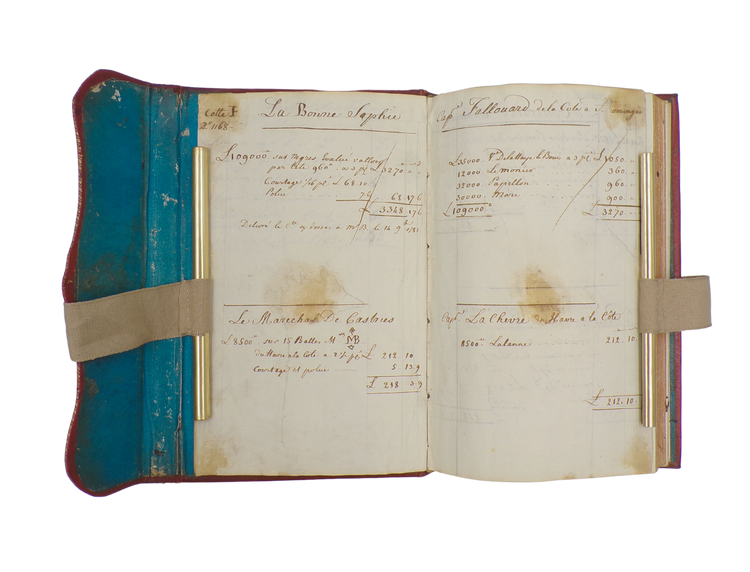 Cotte F
La Bonne Sophie
£109000 sur Negres Evalué
par tête 960 a 3 p £ 3270
Courtage 1/16 p £ 68.10
Police 7.6 68.17.6
£ 3.348.17.6
Delivré le
Le Marechal De Castries
£8500 sur 15 Balles Mses MB
du Havre a la Cote a 2½ p £ 212.10
Courtage et police 5.13.9
£ 218.3.9
Capne Fallouard de la Cote a St Domingue
£35000 a 3 p £ 1050
12000 Le Monier 360
32000 Papillon 960
30000 More 900
£109000 £ 3270
Capne La Chevre du Havre a la Côte
8500 Lalanne 212.10
£ 212.10